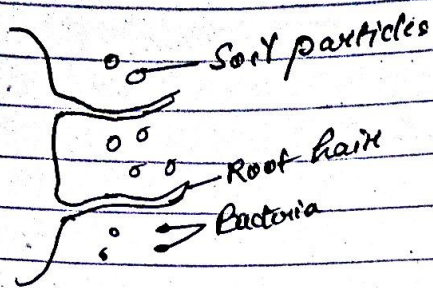 Soil particles
Root hair
Bacteria